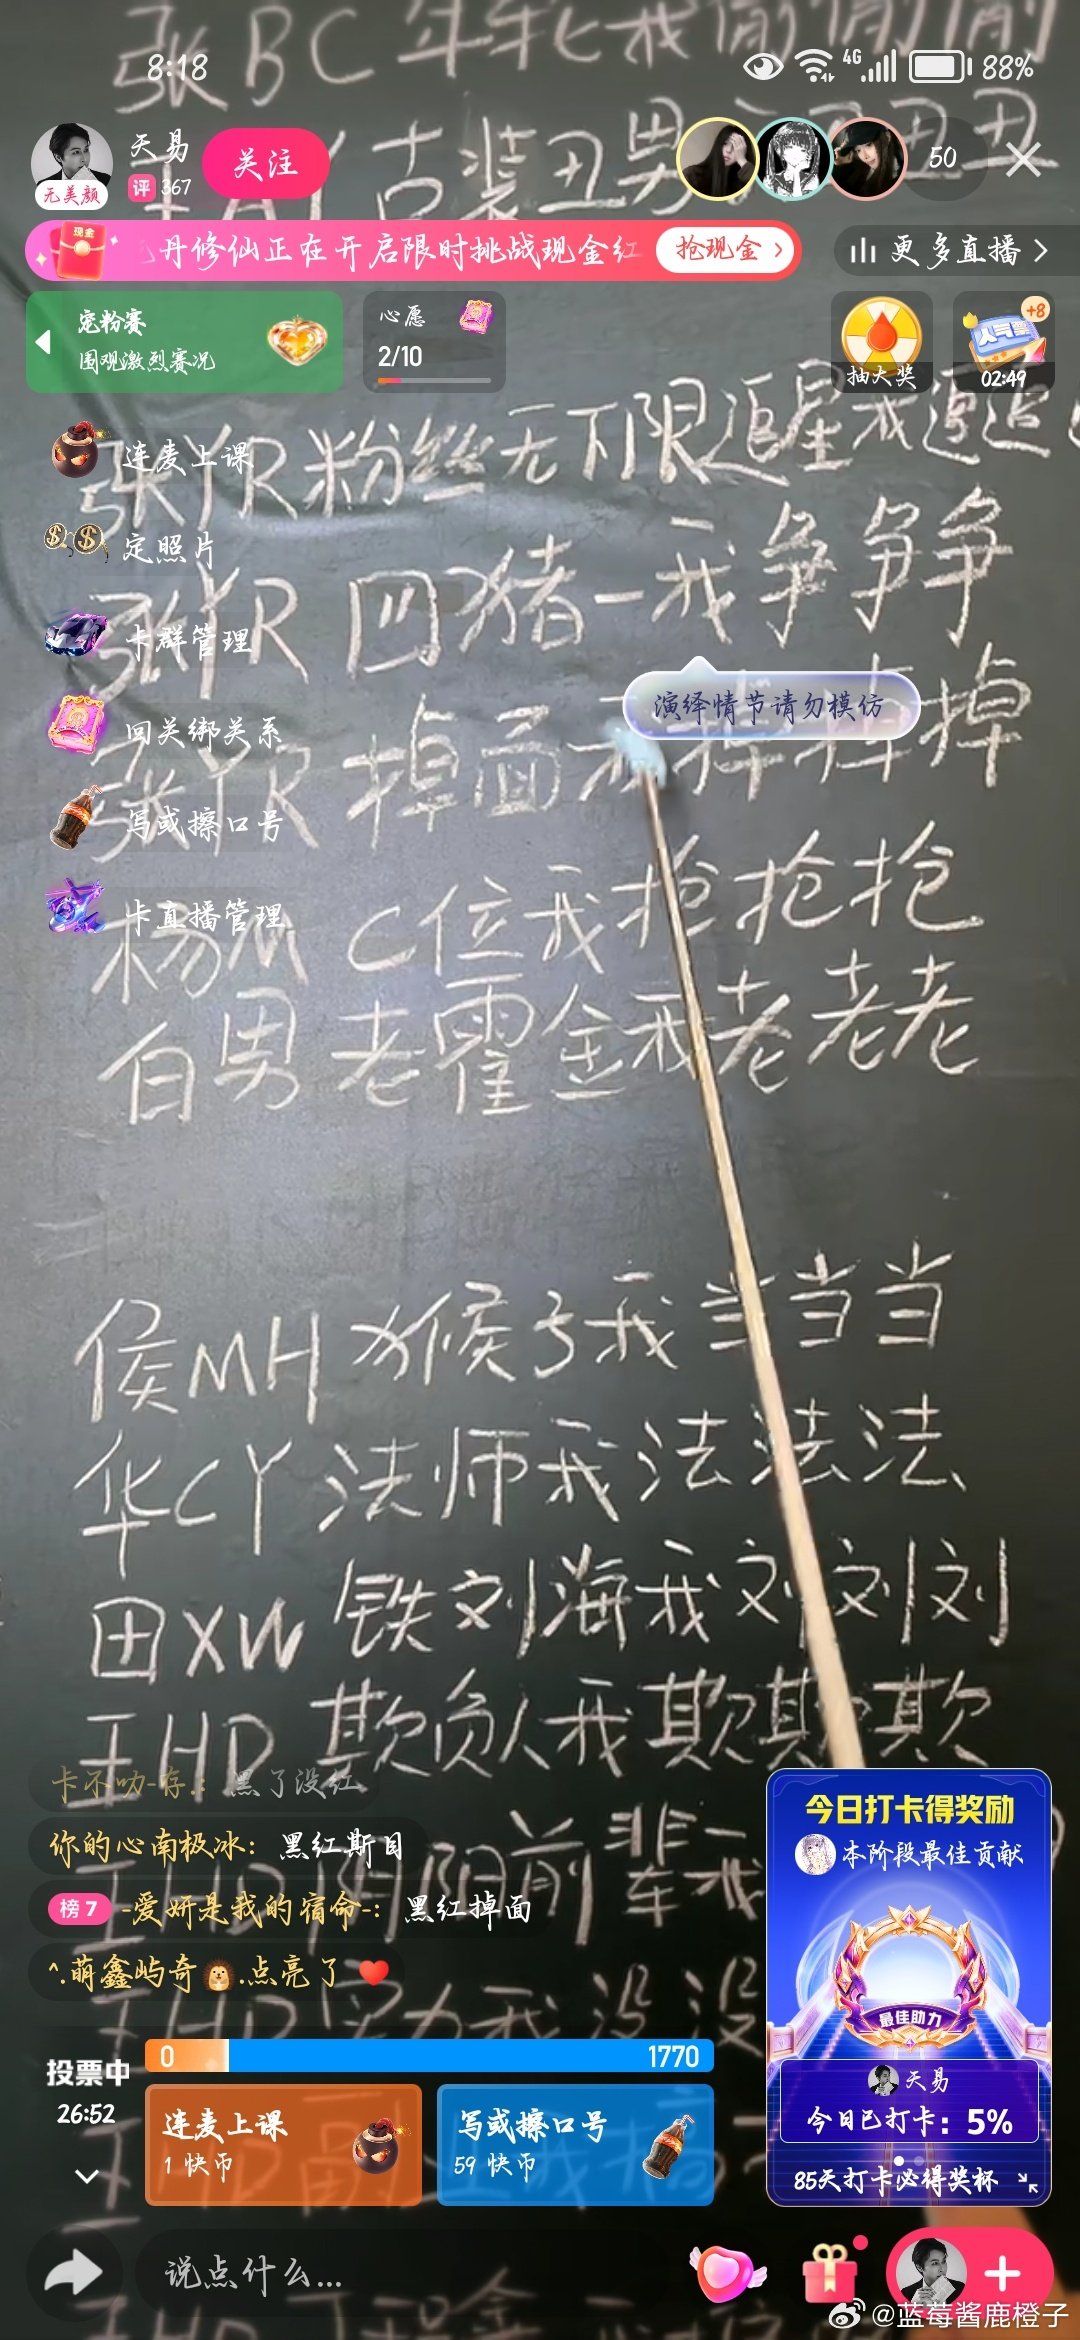 张BC年轮我偷偷偷
8:18
4G
88%
天易
无美颜
评 367
关注
50
古装丑男
丑丑
丹修仙正在开启限时挑战现金红
现金
抢现金
更多直播
宠粉赛
围观激烈赛况
心愿
2/10
抽大奖
人气票
+8
02:49
张YR粉丝无下限追星我追追
连麦上课
定照片
张YR 四猪一我争争争
卡群管理
演绎情节请勿模仿
回关绑关系
张YR 掉面我掉掉掉
写或擦口号
杨M C位我抢抢抢
卡直播管理
白男老霍金我老老老
侯MH 猴子我当当当
华CY法师我法法法
田XW 铁刘海我刘刘刘
王HD 欺负人我欺欺欺
卡不叻-存.: 黑了没红
你的心南极冰: 黑红斯目
前辈我
榜7 -爱妍是我的宿命-: 黑红掉面
^.萌鑫屿奇🦔.点亮了❤️
王HD实力我没没
今日打卡得奖励
本阶段最佳贡献
最佳助力
天易
今日已打卡: 5%
85天打卡必得奖杯
投票中
26:52
0
1770
连麦上课
1 快币
写或擦口号
59 快币
说点什么...
@蓝莓酱鹿橙子